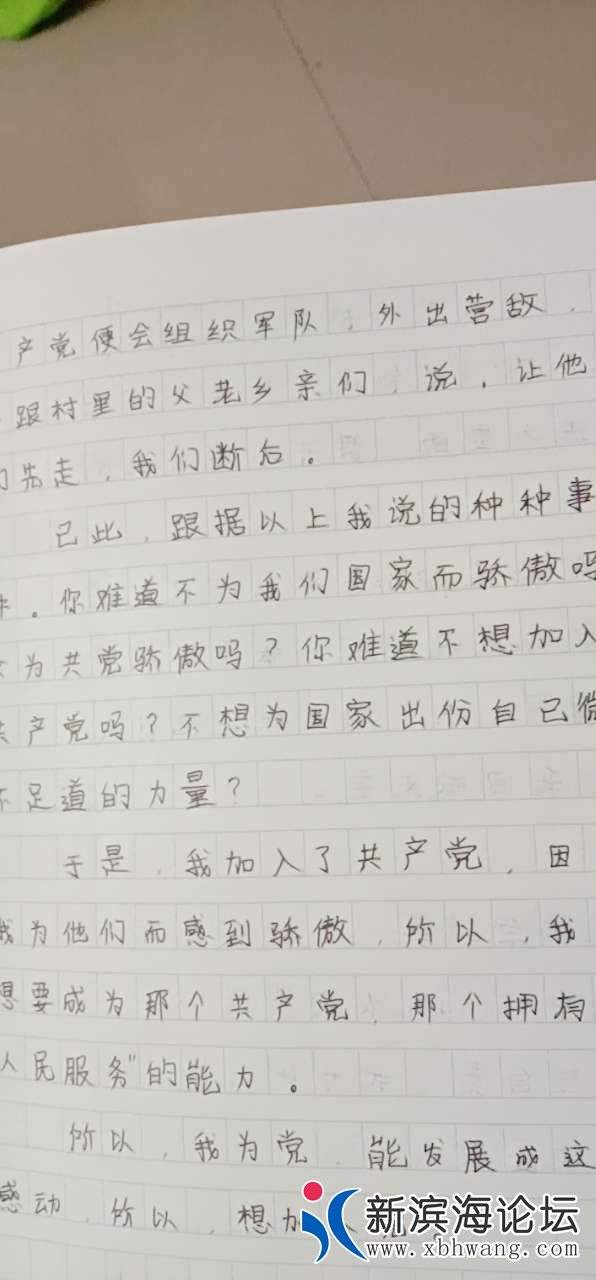 产党便会组织军队,外出营敌,
跟村里的父老乡亲们,说,让他
们先走,我们断后。
己此,跟据以上我说的种种事
件。你难道不为我们国家而骄傲吗
为共党骄傲吗?你难道不想加入
共产党吗?不想为国家出份自己微
不足道的力量?
于是,我加入了共产党,因
我为他们而感到骄傲,所以,我
想要成为那个共产党,那个拥有
人民服务"的能力。
所以,我为党,能发展成这
感动,所以,想加
新滨海论坛
www.xbhwang.com